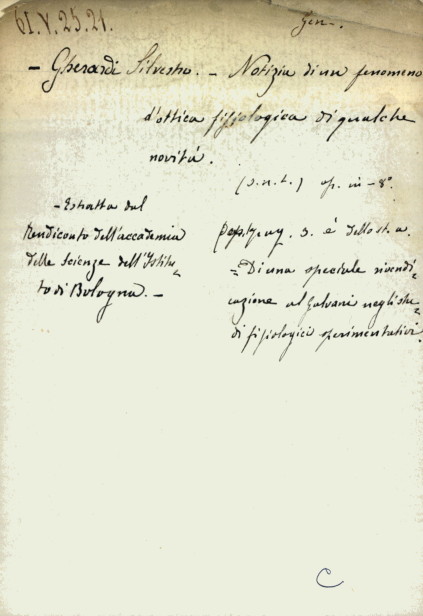 61.V.25.21.
Gen.
- Gherardi Silvestro. - Notizia di un fenomeno
d'ottica fisiologica di qualche
novità.
(s.n.t.) op. in-8º
- Estratta dal
Rendiconto dell'accademia
delle Scienze dell'Istitu=
to di Bologna. -
pag. 3. è dello st. a.
= Di una speciale rivendi=
cazione al Galvani negli stu=
di fisiologici sperimentativi.
C